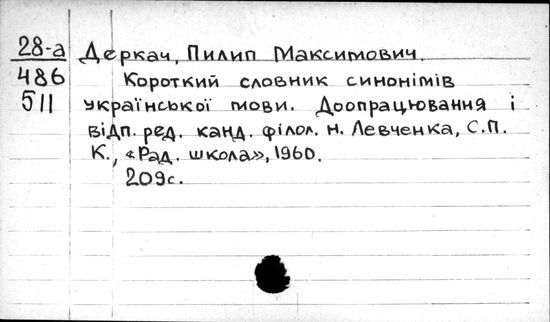 28-а Деркач, Пилип Максимович.
486 Короткий словник синонімів
511 української мови. Доопрацювання і
відп. ред. канд. філол. н. Левченка, С.П.
К., «Рад. школа», 1960.
209с.